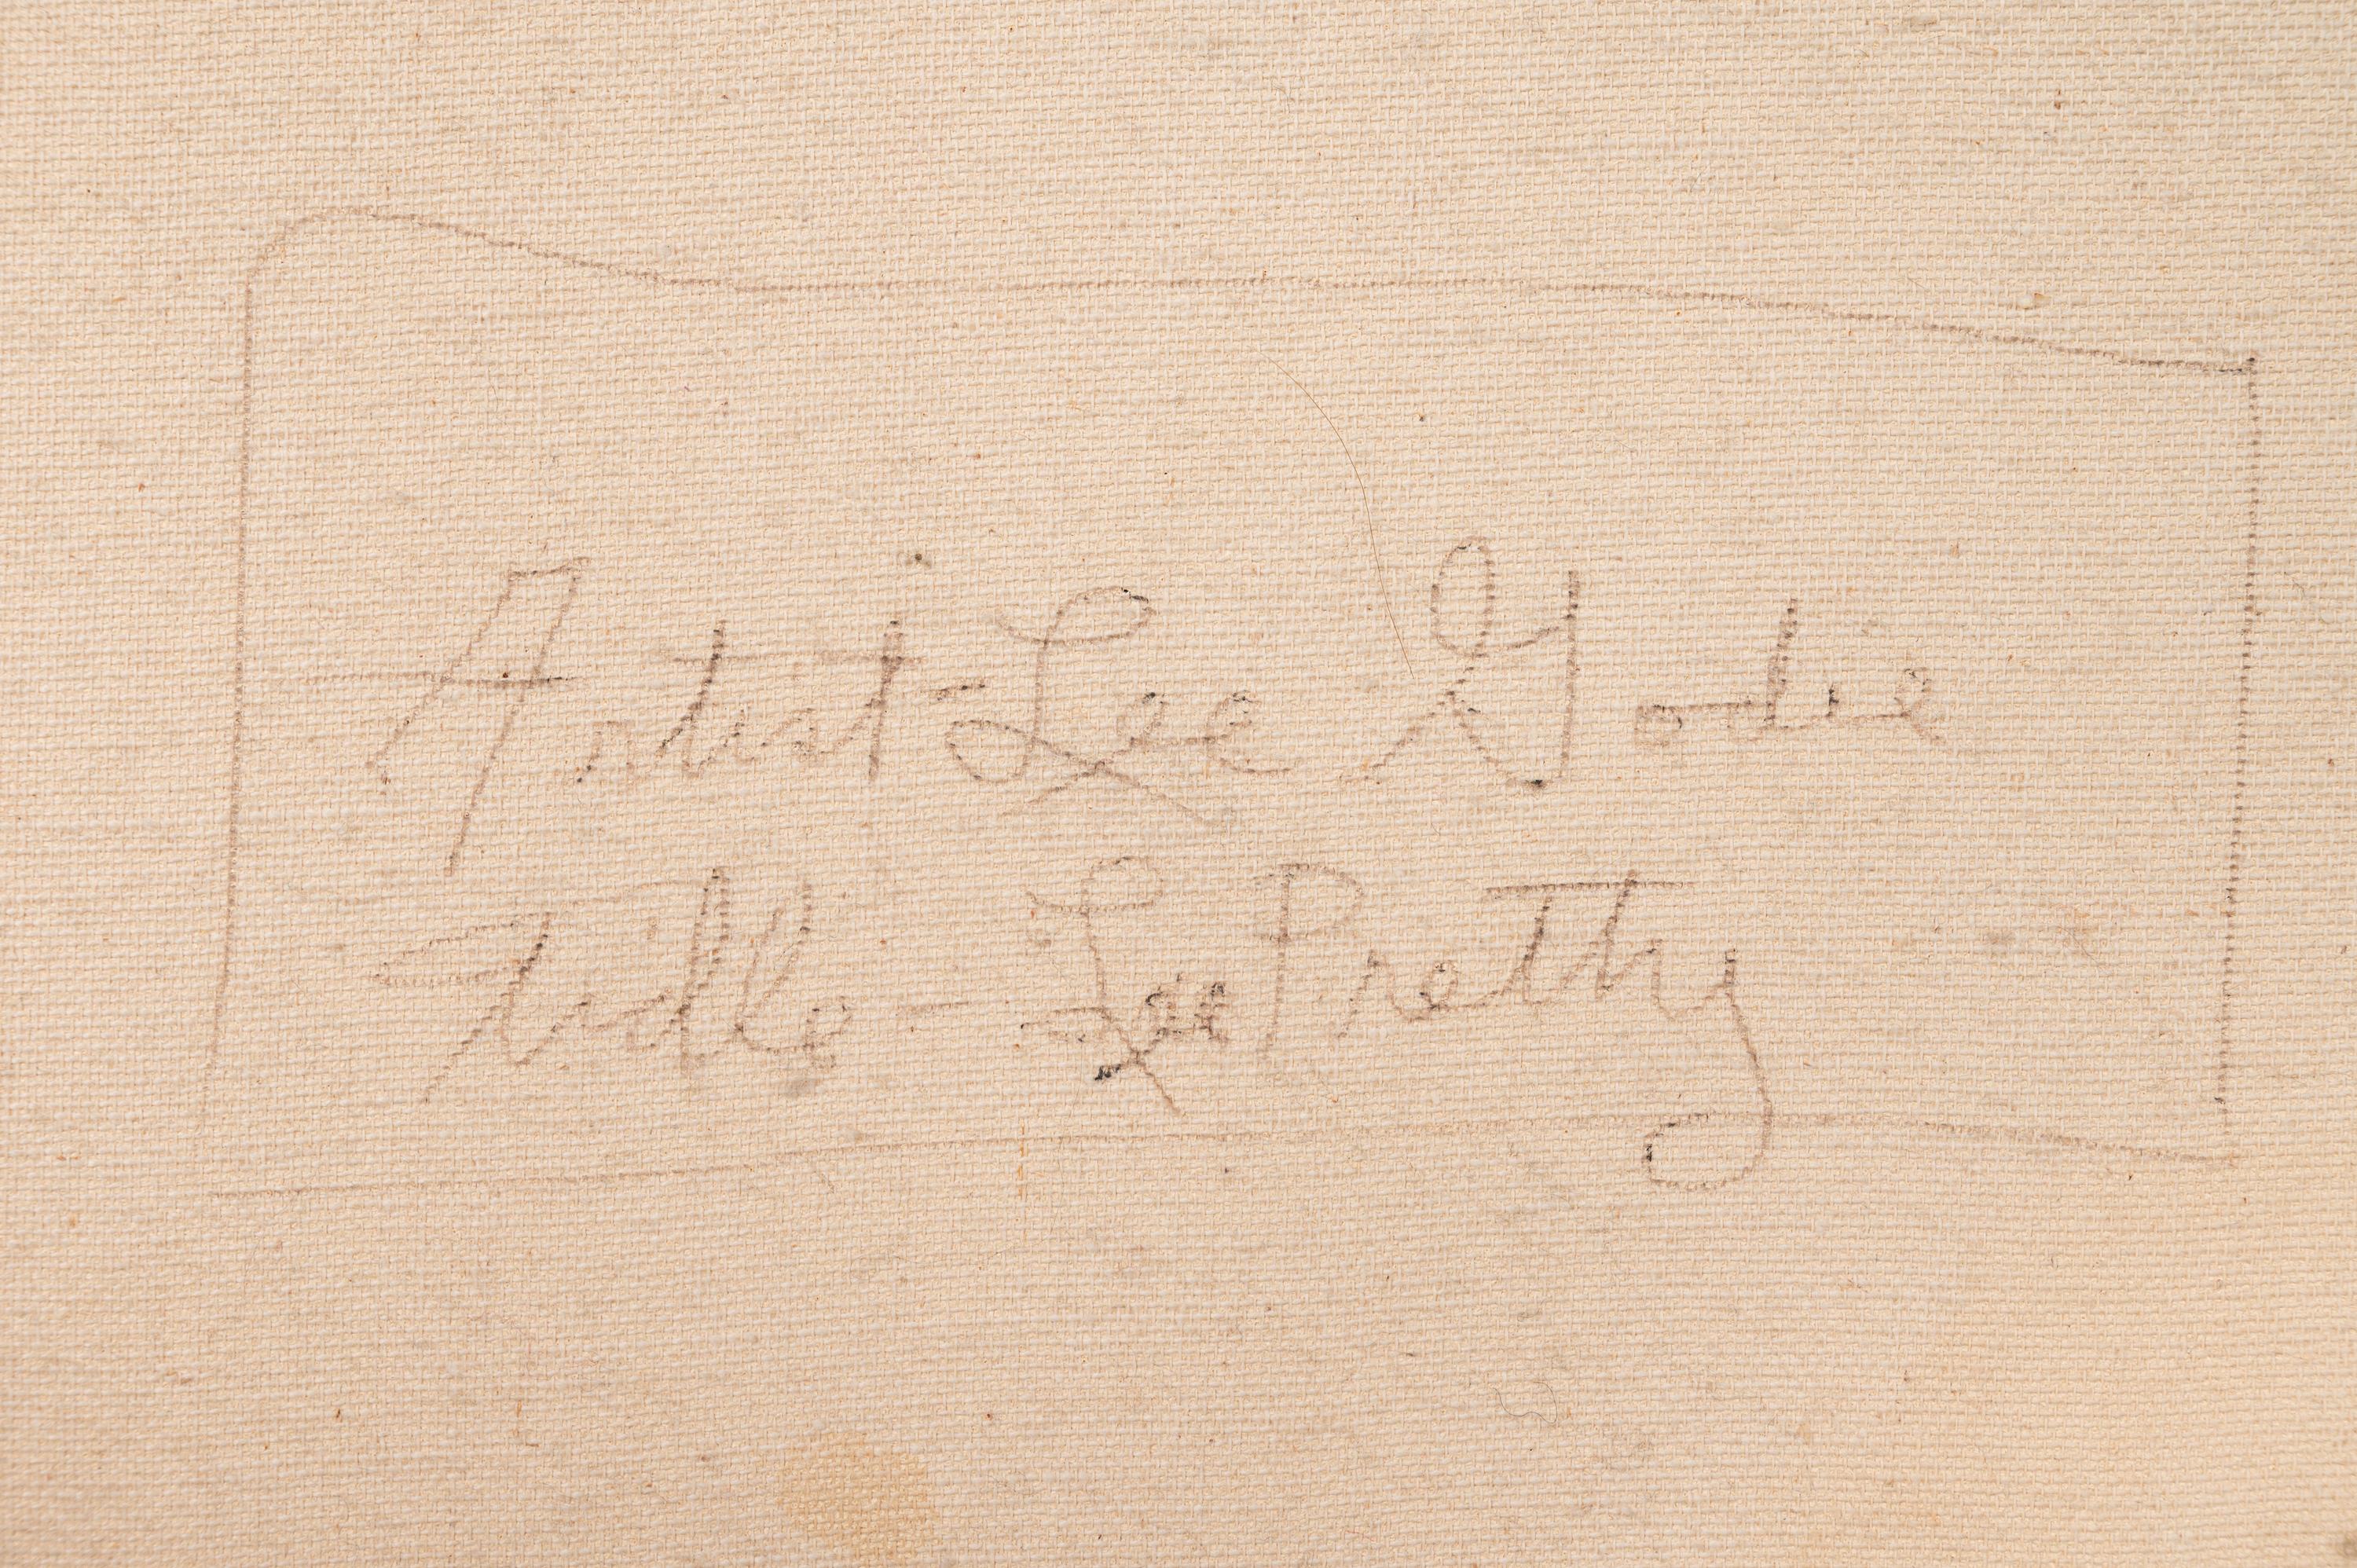 Artist-Lee Godie
Title - Lee Pretty